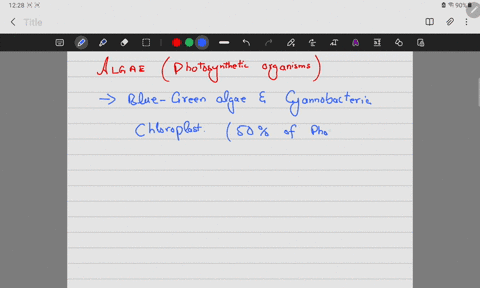 12:28
90%
Title
ALGAE (Photosynthetic organisms)
→ Blue-Green algae & Cyannobacteria
Chloroplast. (50% of Pho